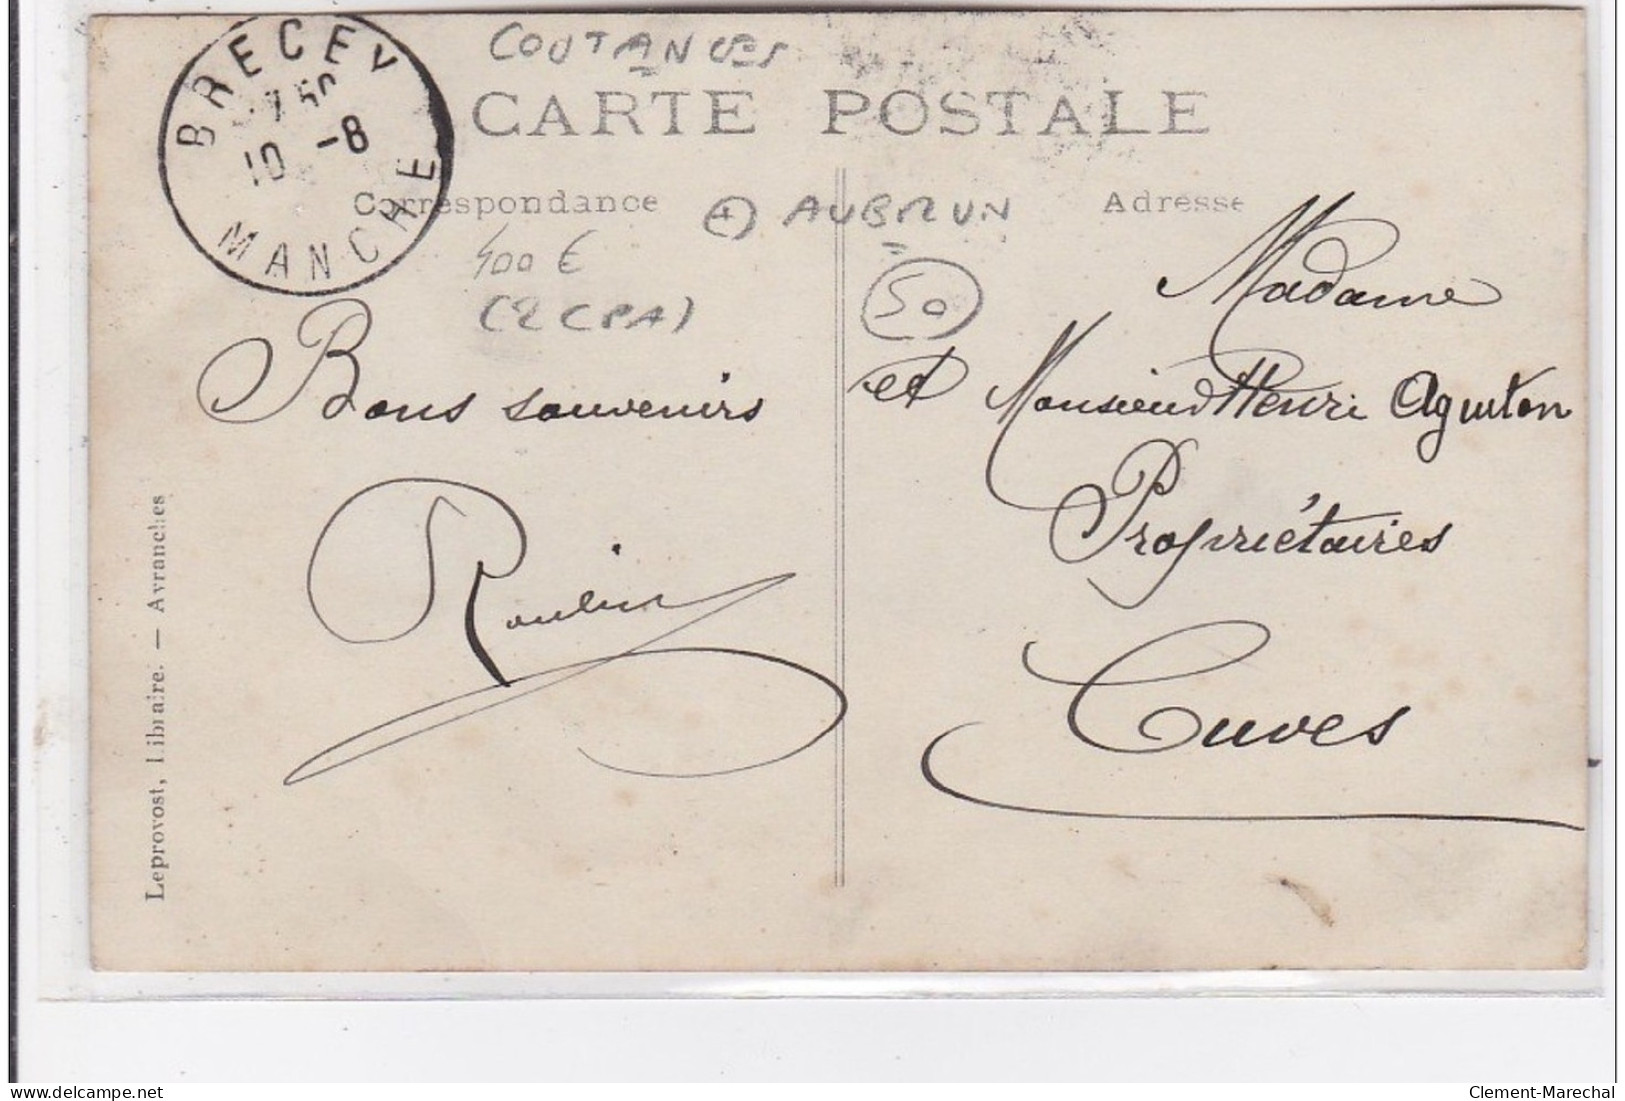 BRECEY
7 50
10 -8
MANCHE
COUTANCES
CARTE POSTALE
Correspondance
Adresse
+ AUBRUN
400 €
(2 CPA)
50
Bons souvenirs
Roulin
Madame
et Monsieur Henri Aguiton
Propriétaires
Cuves
Leprovost, Libraire. — Avranches
Clement-Marechal